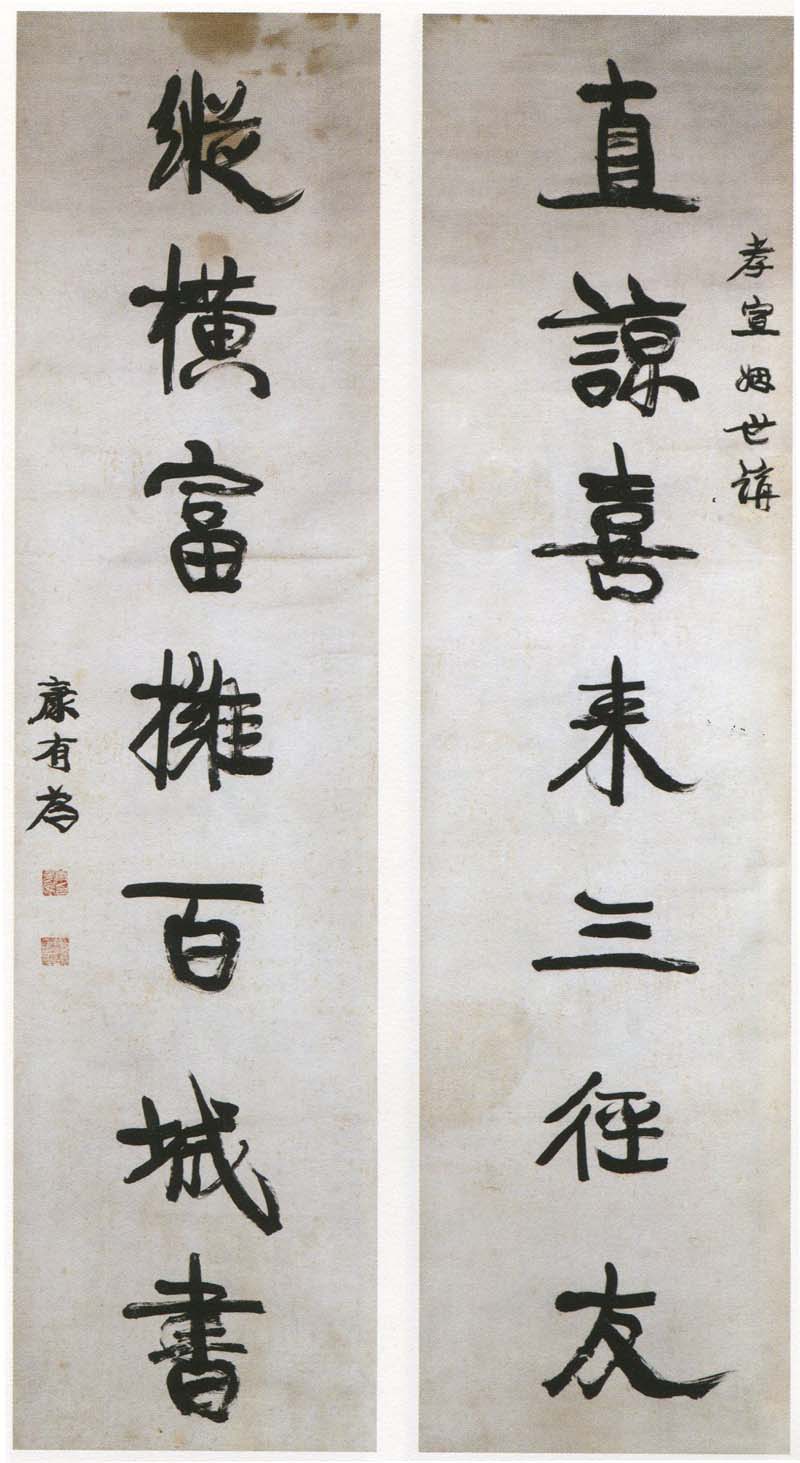 孝宣姻世講
直諒喜来三径友
縱橫富擁百城書
康有為